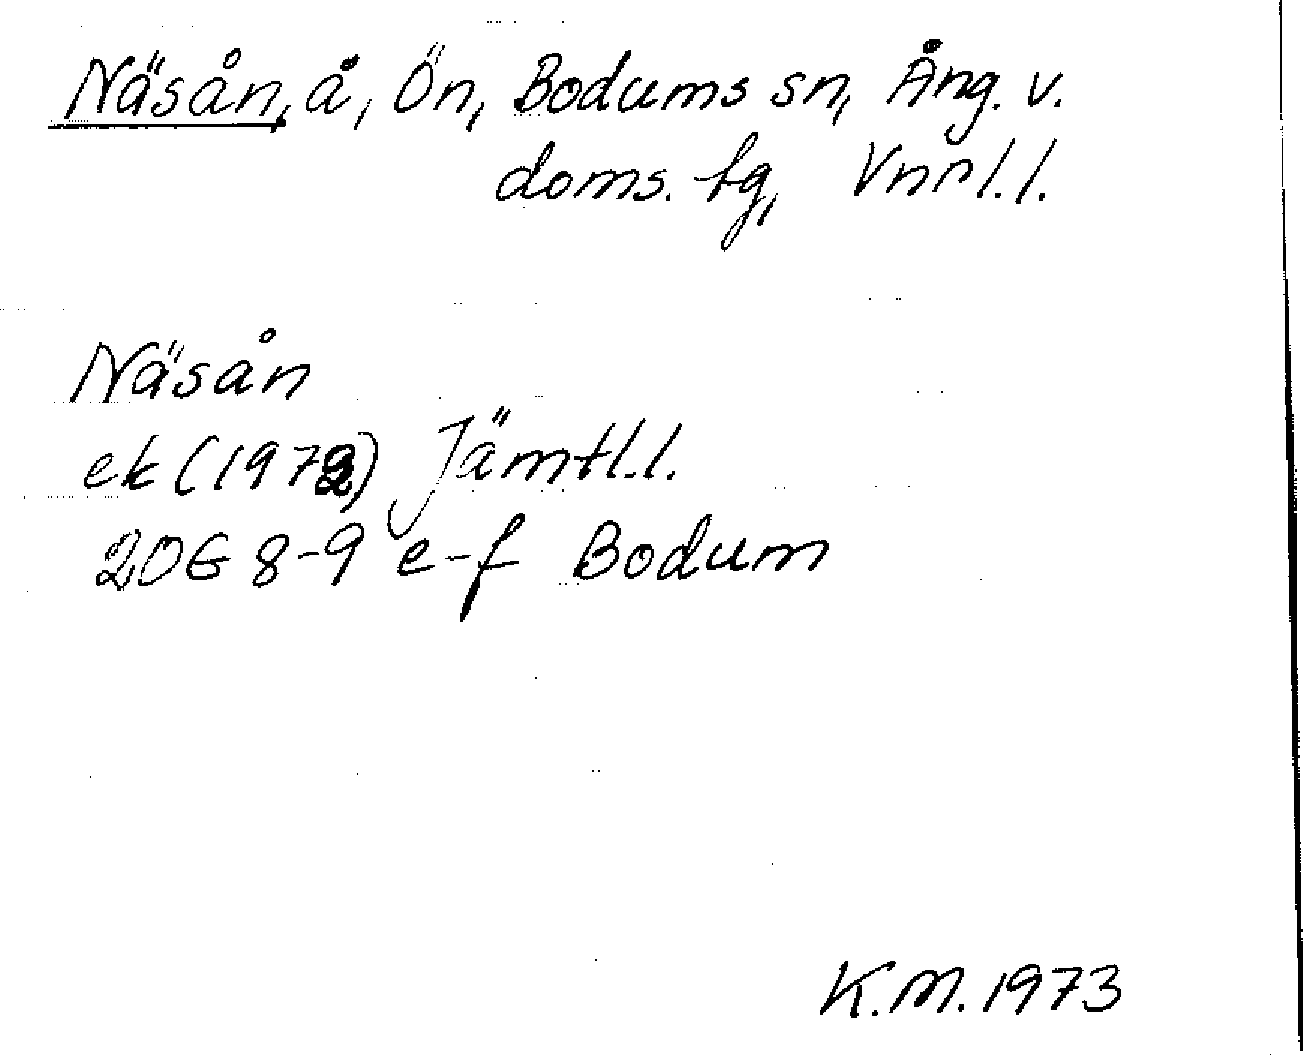 Näsån, å, Ön, Bodums sn, Ång. v.
doms. tg, Vnrl. l.
Näsån
ek (1972) Jämtl. l.
20G 8-9 e-f Bodum
K.M. 1973